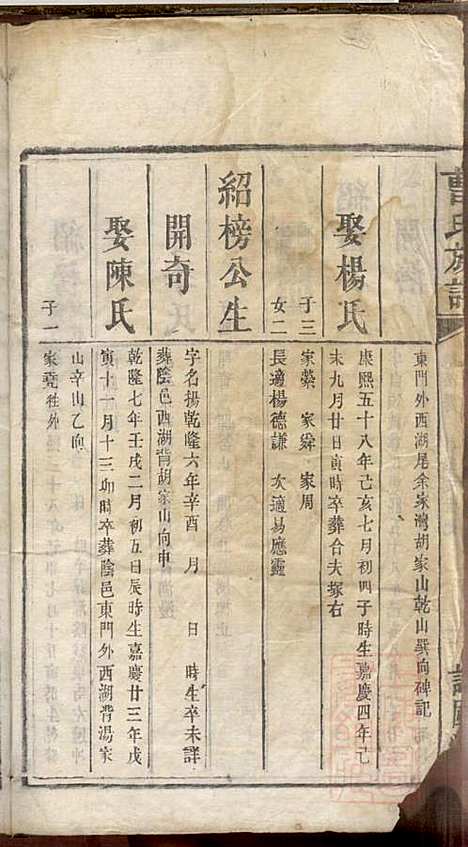 曹氏族譜
東門外西湖尾余家灣胡家山乾山巽向碑記
娶楊氏
康熙五十八年己亥七月初四子時生嘉慶四年己
未九月廿日寅時卒葬合夫塚右
子三
家蘩 家舜 家周
女二
長適楊德謙 次適易應靈
紹榜公生
開奇
字名揚乾隆六年辛酉 月 日 時生卒未詳
葬陰邑西湖背胡家山向申
娶陳氏
乾隆七年壬戌二月初五日辰時生嘉慶廿三年戊
寅十一月十三卯時卒葬陰邑東門外西湖背湯家
山辛山乙向
子一
家堯 外